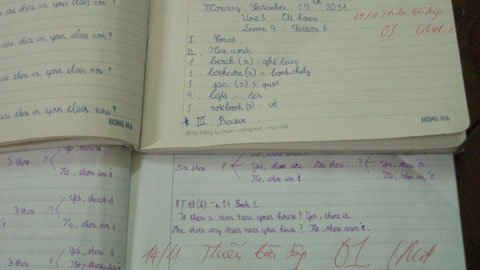 Monday, September 19th 2011
Unit 3 At home
Lesson 4 Section B
19/9 Thiếu bài tập
01
I
II. New words
1. bench (n) : ghế băng
2. bookcase (n) = bookshelf
3. (n) = quạt
4. light : đèn
5. notebook (n) : vở
III. Practice
are there in your class now?
are there in your class now?
are there in your class now?
are there in your class now?
HONG HA
HONG HA
Is there ...?
No, there isn't
Yes, there is
there ...?
No, there isn't
Yes, there is
No, there
Are there ...?
Yes, there are
No, there aren't
Are there ...?
Yes, there're
No, there aren't
Is there a river near your house? Yes, there is.
Are there any trees near your house? No, there aren't.
14/11 Thiếu bài tập 01